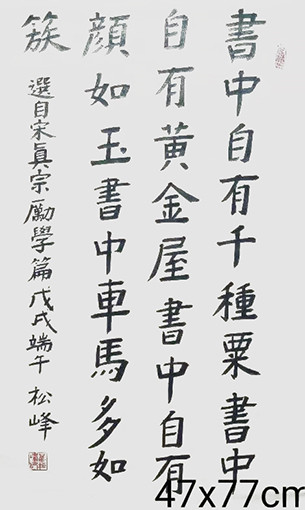 書中自有千種粟書中
自有黃金屋書中自有
顏如玉書中車馬多如
簇
選自宋真宗勵學篇戊戌端午 松峰
47x77cm